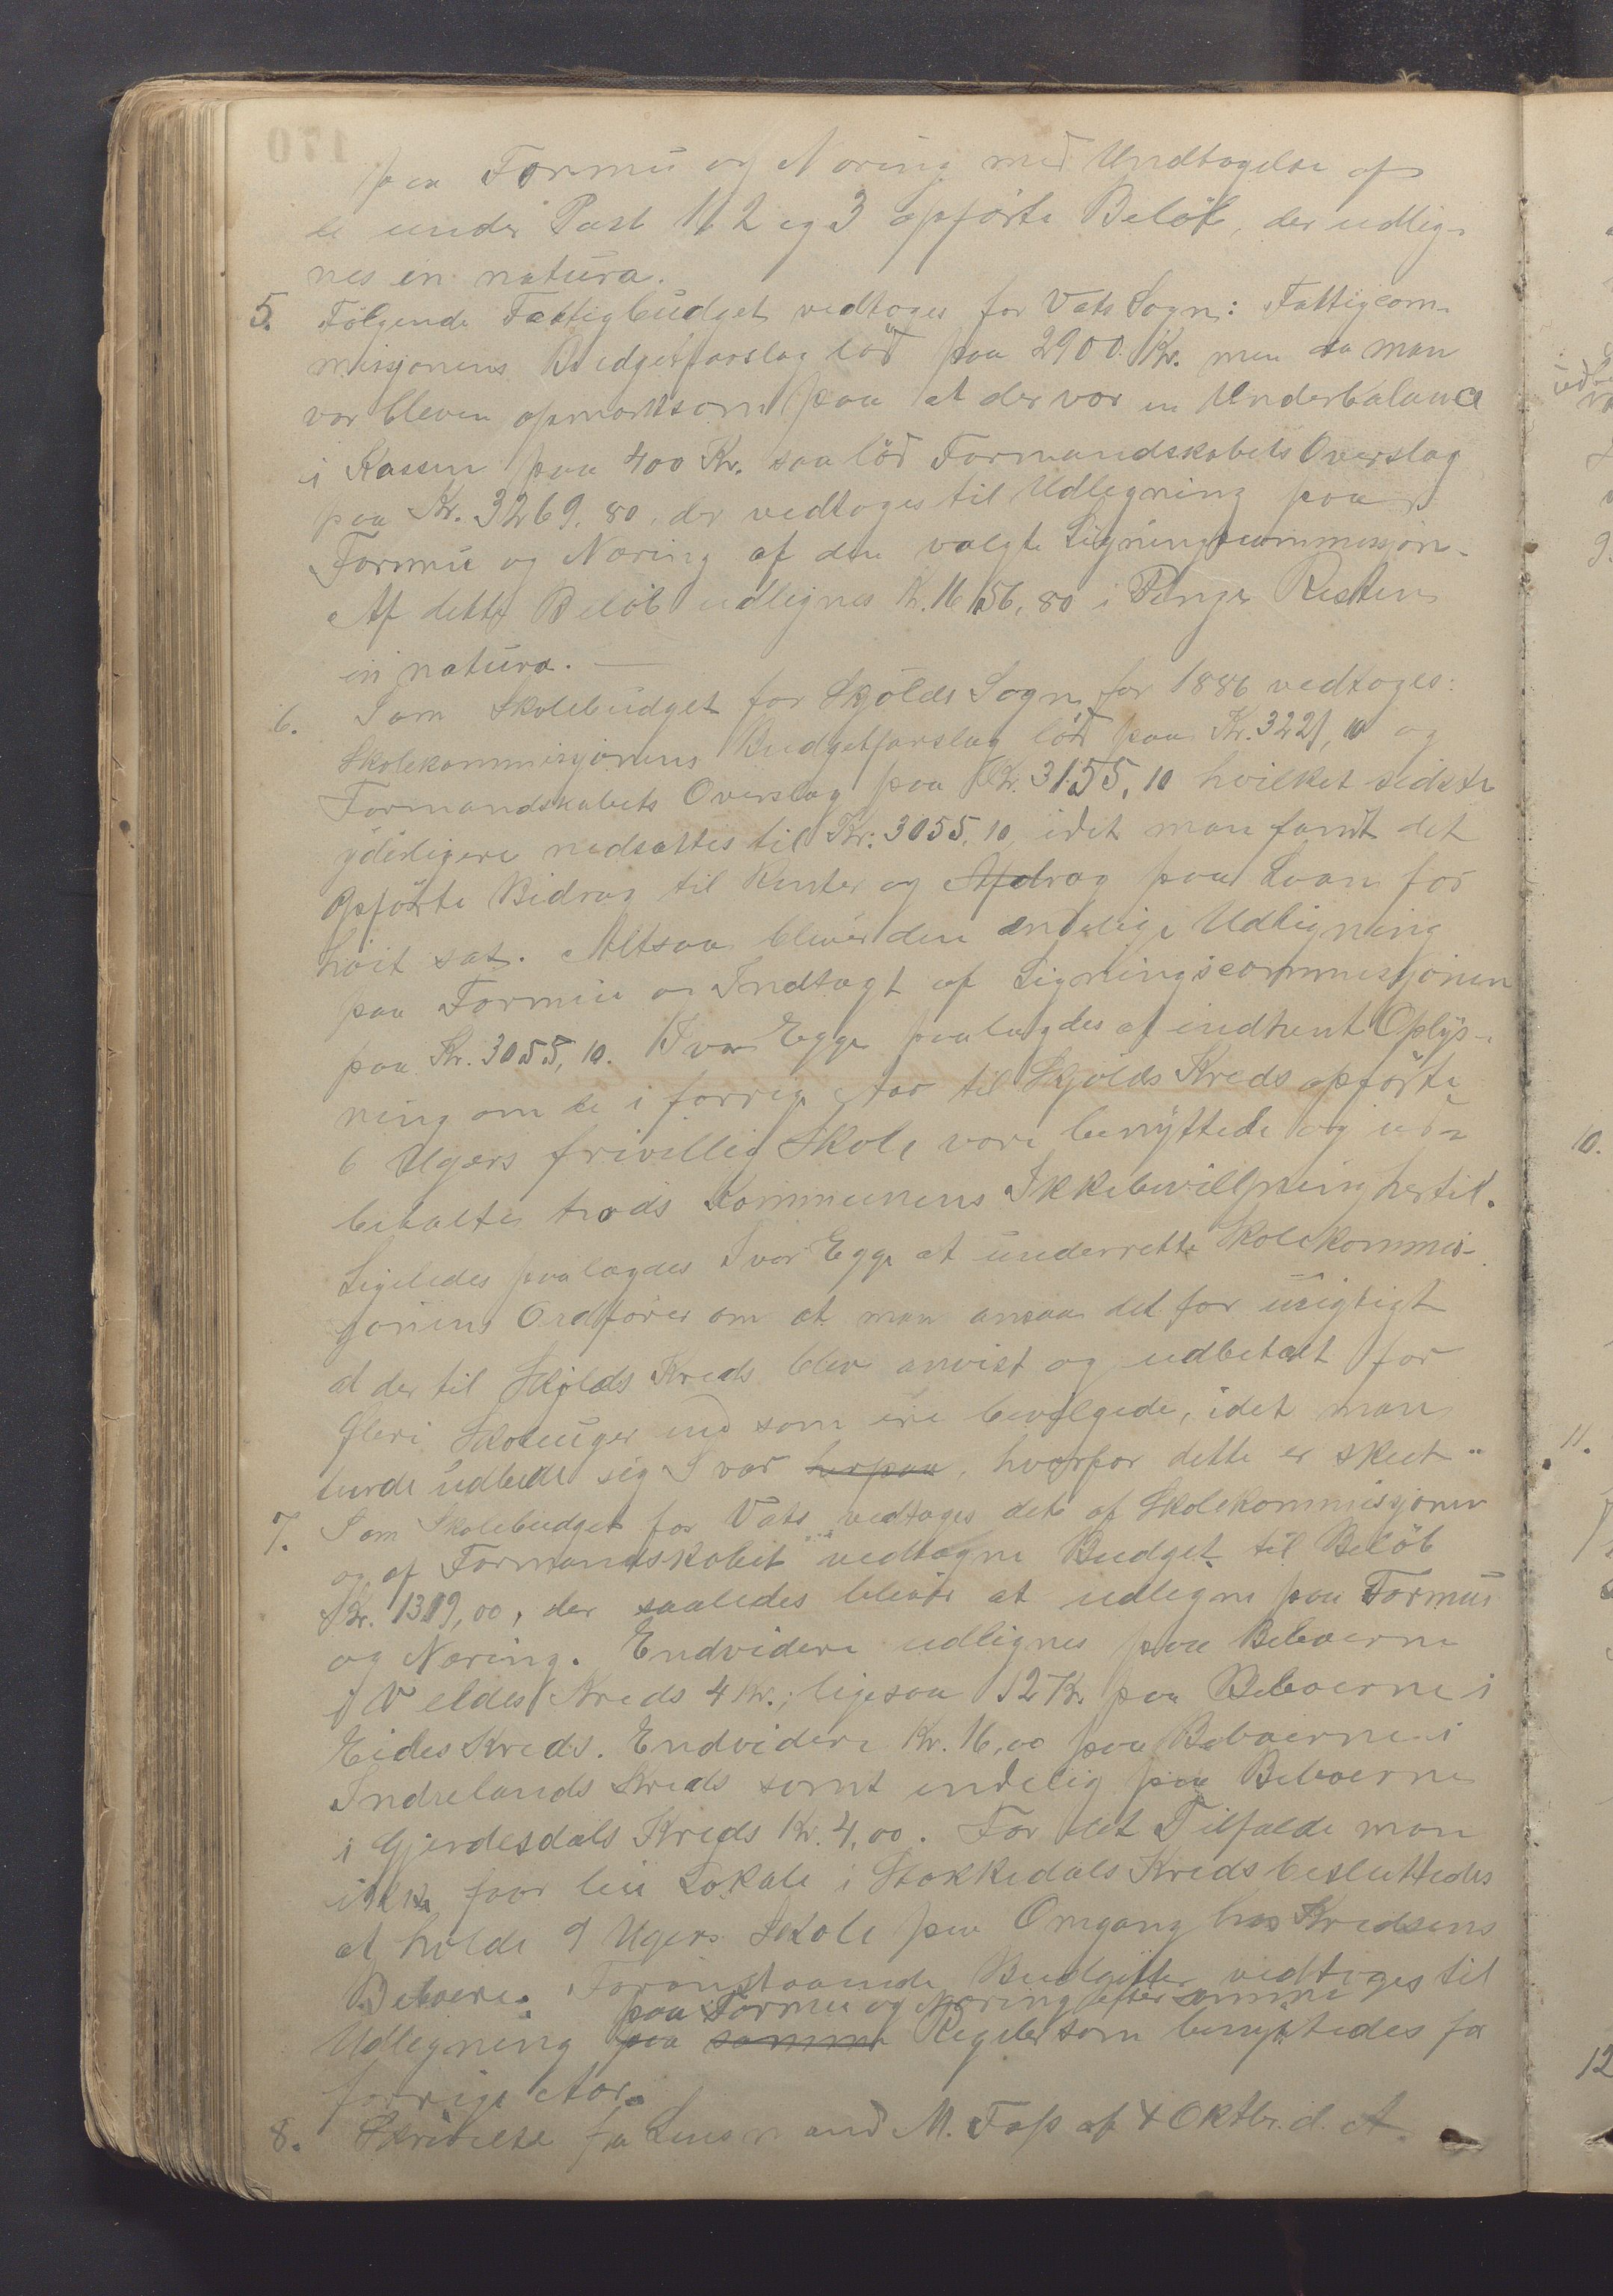 paa Formue og Næring med Undtagelse af
de under Post 1, 2 og 3 opførte Beløb, der udlig-
nes in natura.
5. Følgende Fattigbudget vedtoges for Vats Sogn: Fattigcom-
missjonens Budgetforslag lød paa 2900 Kr. men da man
var bleven opmærksom paa at der var en Underbalance
i Kassen paa 400 Kr. saa lød Formandskabets Overslag
paa Kr. 3269,80, der vedtoges til Udligning paa
Formue og Næring af den valgte Ligningscommissjon.
Af dette Beløb udlignes Kr. 1656,80 i Penge Resten
in natura. —
6. Som Skolebudget for Skjolds Sogn for 1886 vedtoges:
Skolekommissjonens Budgetforslag lød paa Kr. 3221,10 og
Formandskabets Overslag paa Kr. 3155,10 hvilket sidste
yderligere nedsattes til Kr. 3055,10, idet man fandt det
opførte Bidrag til Renter og Afdrag paa Laan for
høit sat. Altsaa bliver den endelige Udligning
paa Formue og Indtægt af Ligningscommissjonen
paa Kr. 3055,10. Ivar Egge paalagdes at indhente Oplys-
ning om de i forrige Aar til Skjolds Kreds opførte
6 Ugers frivillig Skole vare benyttede og ud-
betalte trods Kommunens Ikkebevillgning hertil.
Ligeledes paalagdes Ivar Egge at underrette Skolekommis-
sjonens Ordfører om at man ansaa det for urigtigt
at der til Skjolds Kreds blev anvist og udbetalt for
flere Skoleuger end som ere bevilgede, idet man
turde udbede sig Svar herpaa, hvorfor dette er skeet.
7. Som Skolebudget for Vats vedtoges det af Skolekommissjonen
og af Formandskabet vedtagne Budget til Beløb
Kr. 1319,00, der saaledes bliver at udligne paa Formue
og Næring. Endvidere udlignes paa Beboerne
i Veldes Kreds 4 Kr.; ligesaa 12 Kr. paa Beboerne i
Eides Kreds. Endvidere Kr. 16,00 paa Beboerne i
Indrelands Kreds samt endelig paa Beboerne
i Gjerdesdals Kreds Kr. 4,00. For det Tilfælde man
ikke faar leie Lokale i Stokkedals Kreds besluttedes
at holde 9 Ugers Skole paa Omgang hos Kredsens
Beboere. Foranstaaende Budgetter vedtoges til
paa Formue og Næring efter samme
Udligning paa samme Regler som benyttedes for
forrige Aar.
8. Skrivelse fra Lensmand M. Fass af 4 Oktbr. d. A.